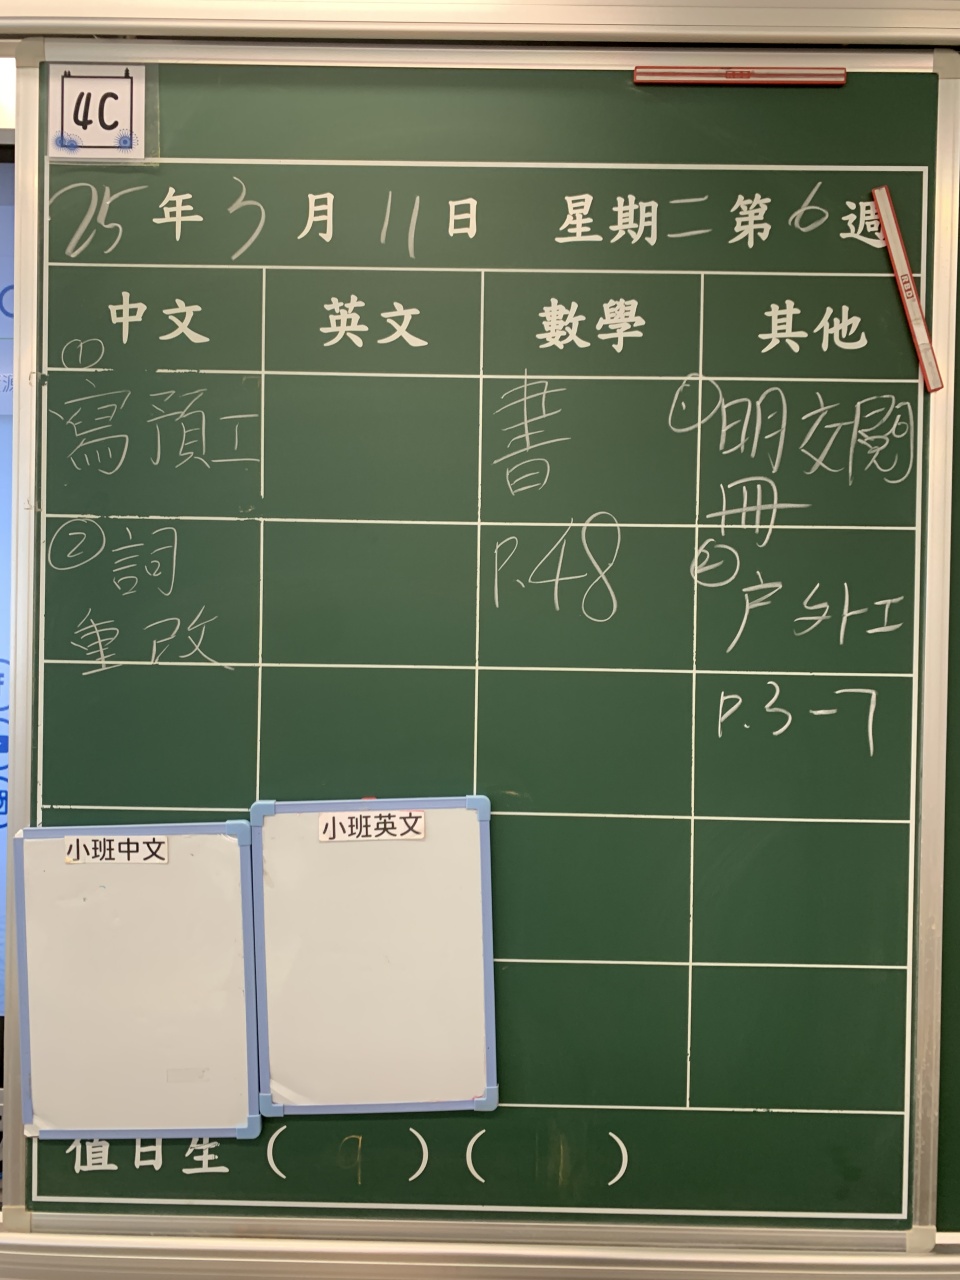 4C
25年3月11日 星期二第6週
中文 英文 數學 其他
①
寫預工
書
①明交閱
冊
②詞
重改
P.48
②
戶外工
P.3-7
小班中文
小班英文
值日生( 9 )( 11 )